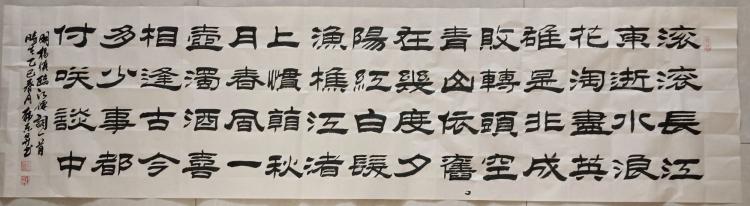 滚滚長江
東逝水浪
花淘盡英
雄是非成
敗轉頭空
青山依舊
在幾度夕
陽紅白髮
漁樵江渚
上慣看秋
月春風一
壺濁酒喜
相逢古今
多少事都
付咲談中
明楊慎臨江仙詞一首
時在乙巳春月